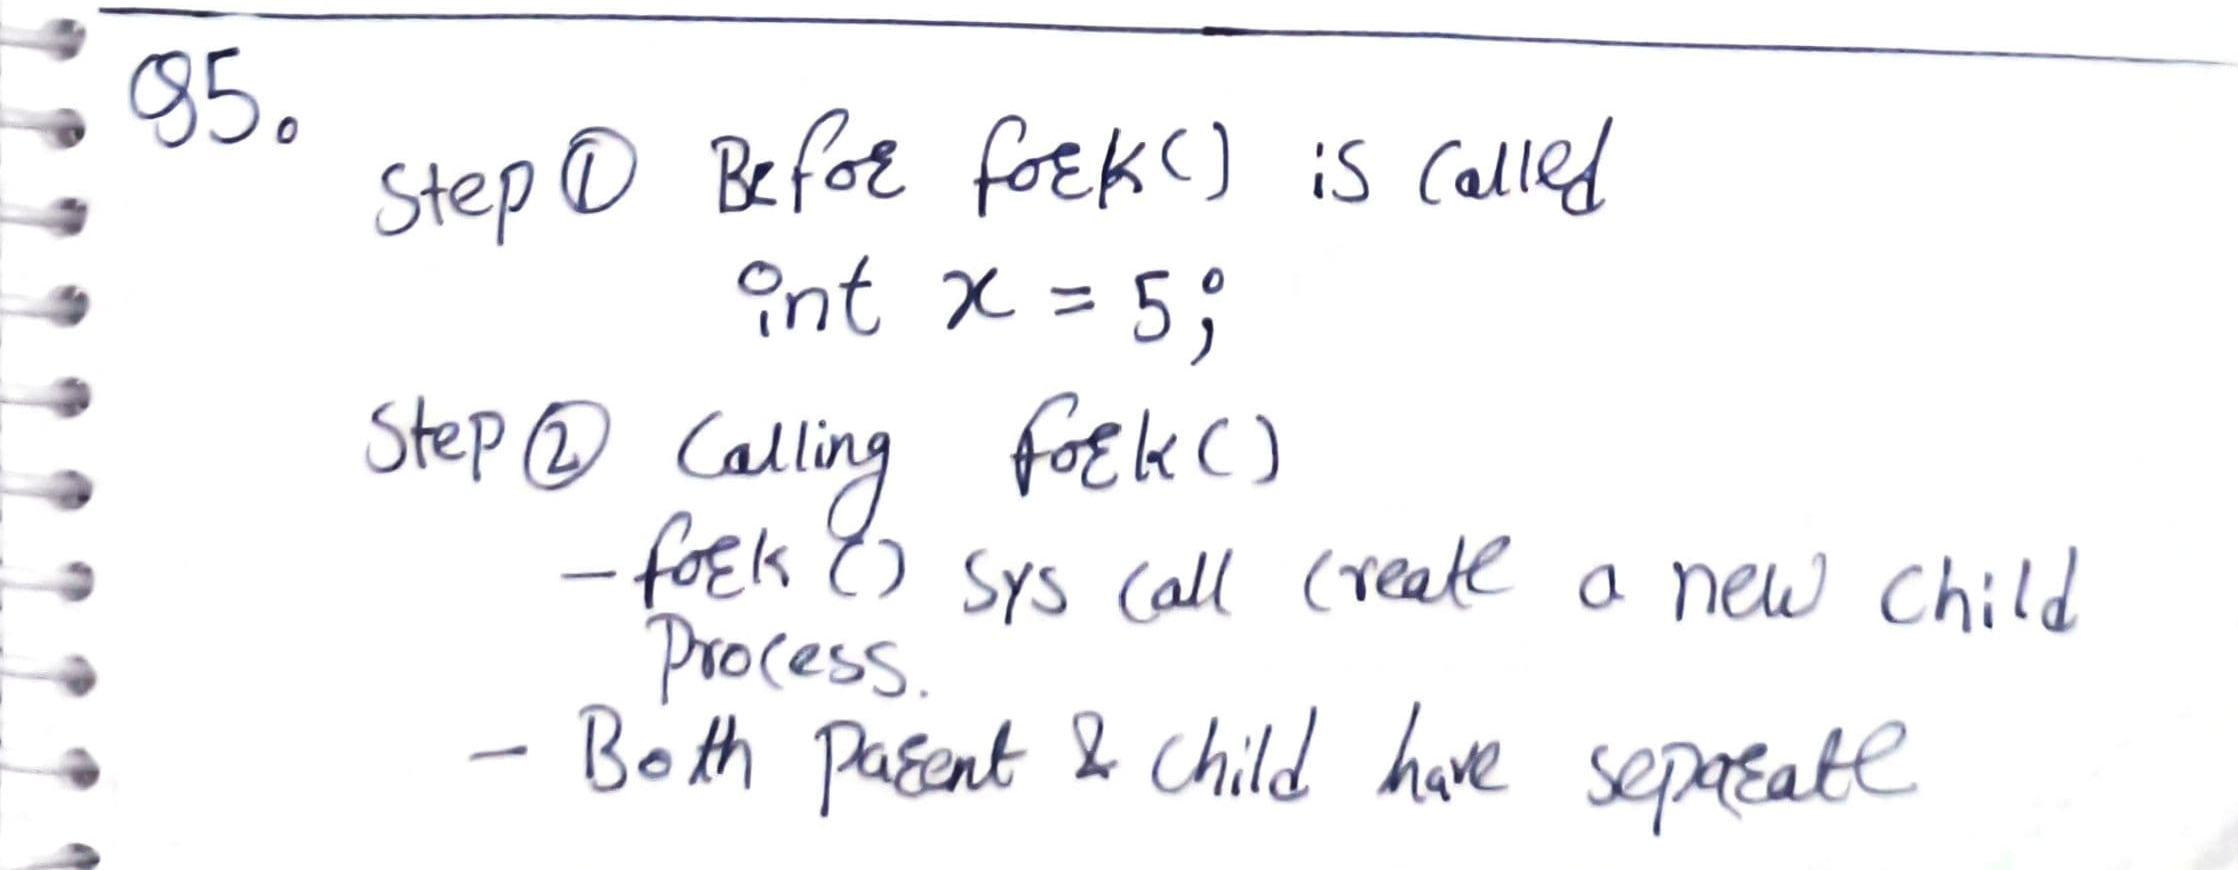 Q5.
Step ① Before fork() is called
int x = 5;
Step ② Calling fork()
- fork () sys call create a new child
Process.
- Both parent & child have separate